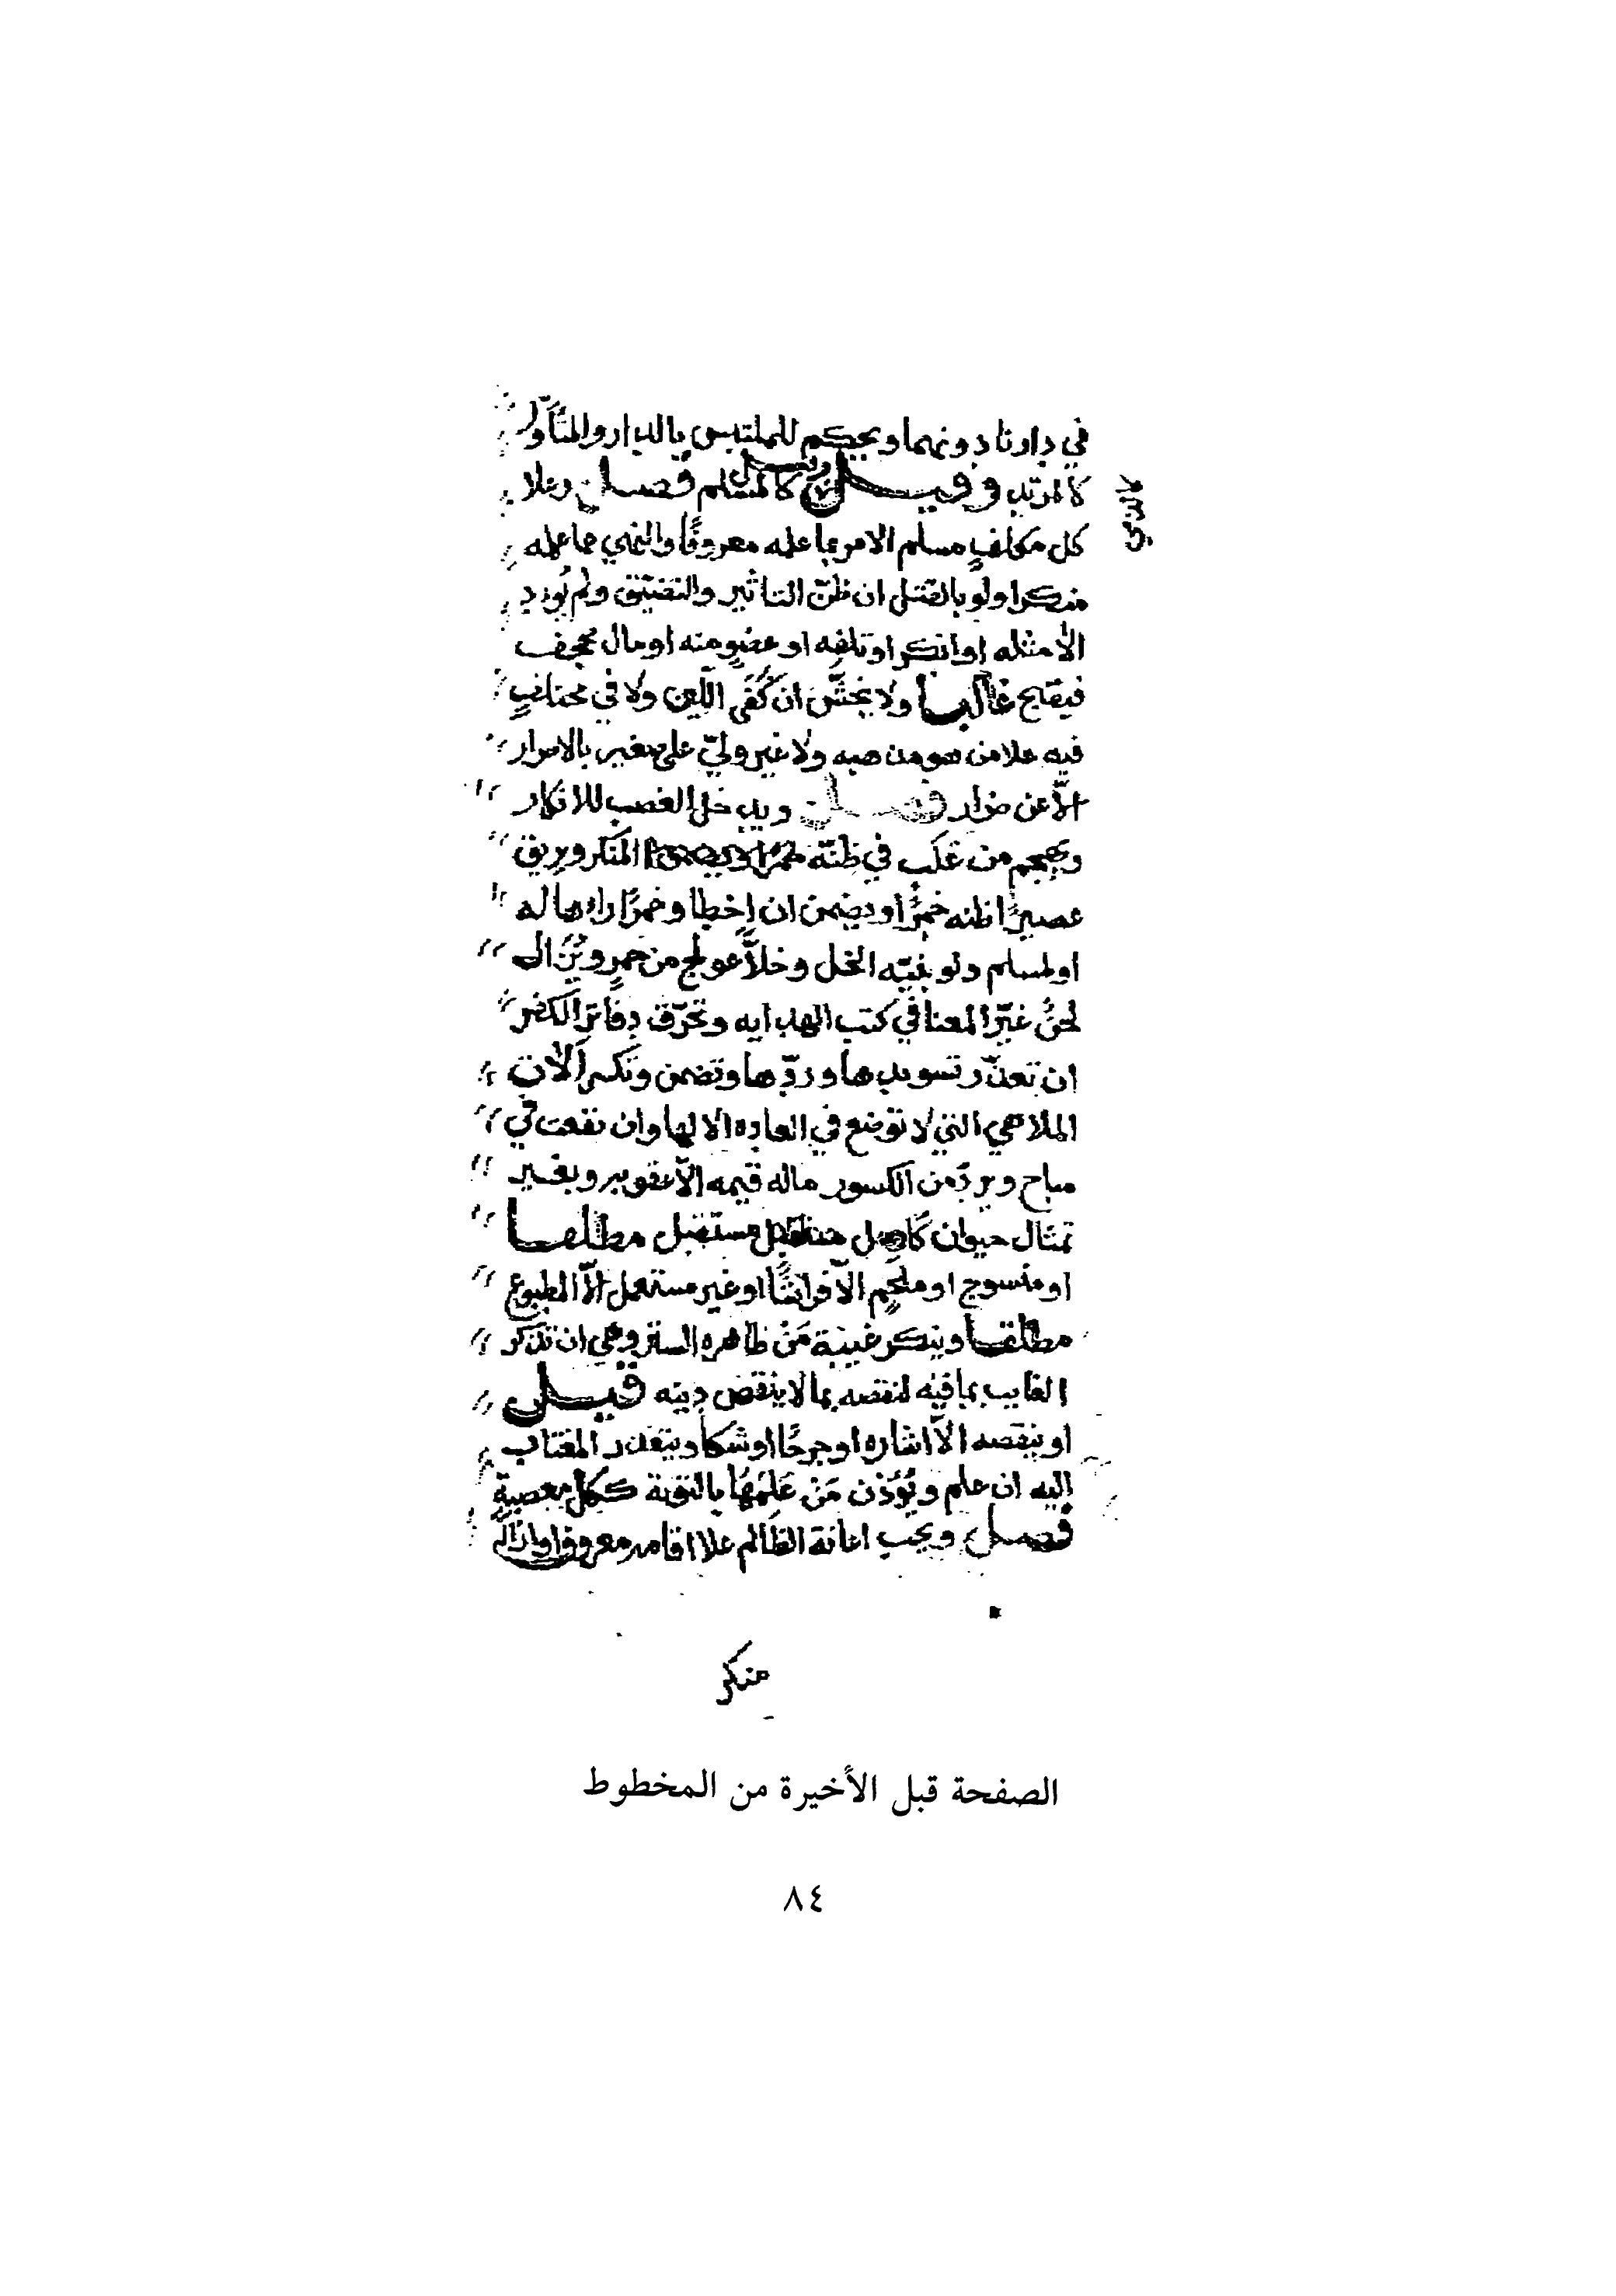 في دارنا دونهما ويحكم للملتبس بالدار والمتأول
كالمرتد وقيل كالمسلم فصل وعلا
كالذمي
كل مكلف مسلم الامر بما علمه معروفًا والنهي عما علمه
منكرا ولو بالقتل ان ظنّ التاثير والتضيّق ولم يُود
الا مثله او انكر او تلفه او عضوٍ منه او مال مجحف
فيقبح غالبا ولا يخشّن ان كُفَى اللّين ولا في مختلفٍ
فيه علا من هو مذهبه ولا غير وليّ على صغير بالاضرار
الّا عن ضرار فصل ويدخل الغصب للانكار
ويهجم من غلب في ظنّه المنكر ويريق
عصيرًا ظنه خمرًا ويضمن ان اخطا وخمرًا راها له
او لمسلم ولو بنيّه الخل وخلاًّ عولج من خمرٍ ويُزال
لحنٌ غيّر المعنا في كتب الهدايه وتحرّق دفاتر الكفر
ان تعذّر تسويدها وردّها وتضمن وتكسر آلات
الملاهي التي لا توضع في العاده الا لها وان نفعت في
مباح ويردّ من الكسور ماله قيمه الّا عقوبه ويغيير
تمثال حيوان كامل مستقل مستعمل مطلقا
او منسوج او ملحَمٍ الّا فراشًا او غير مستعمل الّا المطبوع
مطلقا وينكر غيبة مَنْ ظاهره الستر وهي ان تذكر
الغايب بما فيه لنقصه بما لا ينقص دينه قيل
او ينقصه الّا اشاره او جرحًا او شكا ويتعذر المغتاب
اليه ان علم ويُؤذن مَنْ عَلِمَهَا بالتوبة ككل معصيةٍ
فصل ويجب اعانة الظالم علا اقامه معروف او ازاله
منكر
الصفحة قبل الأخيرة من المخطوط
٨٤